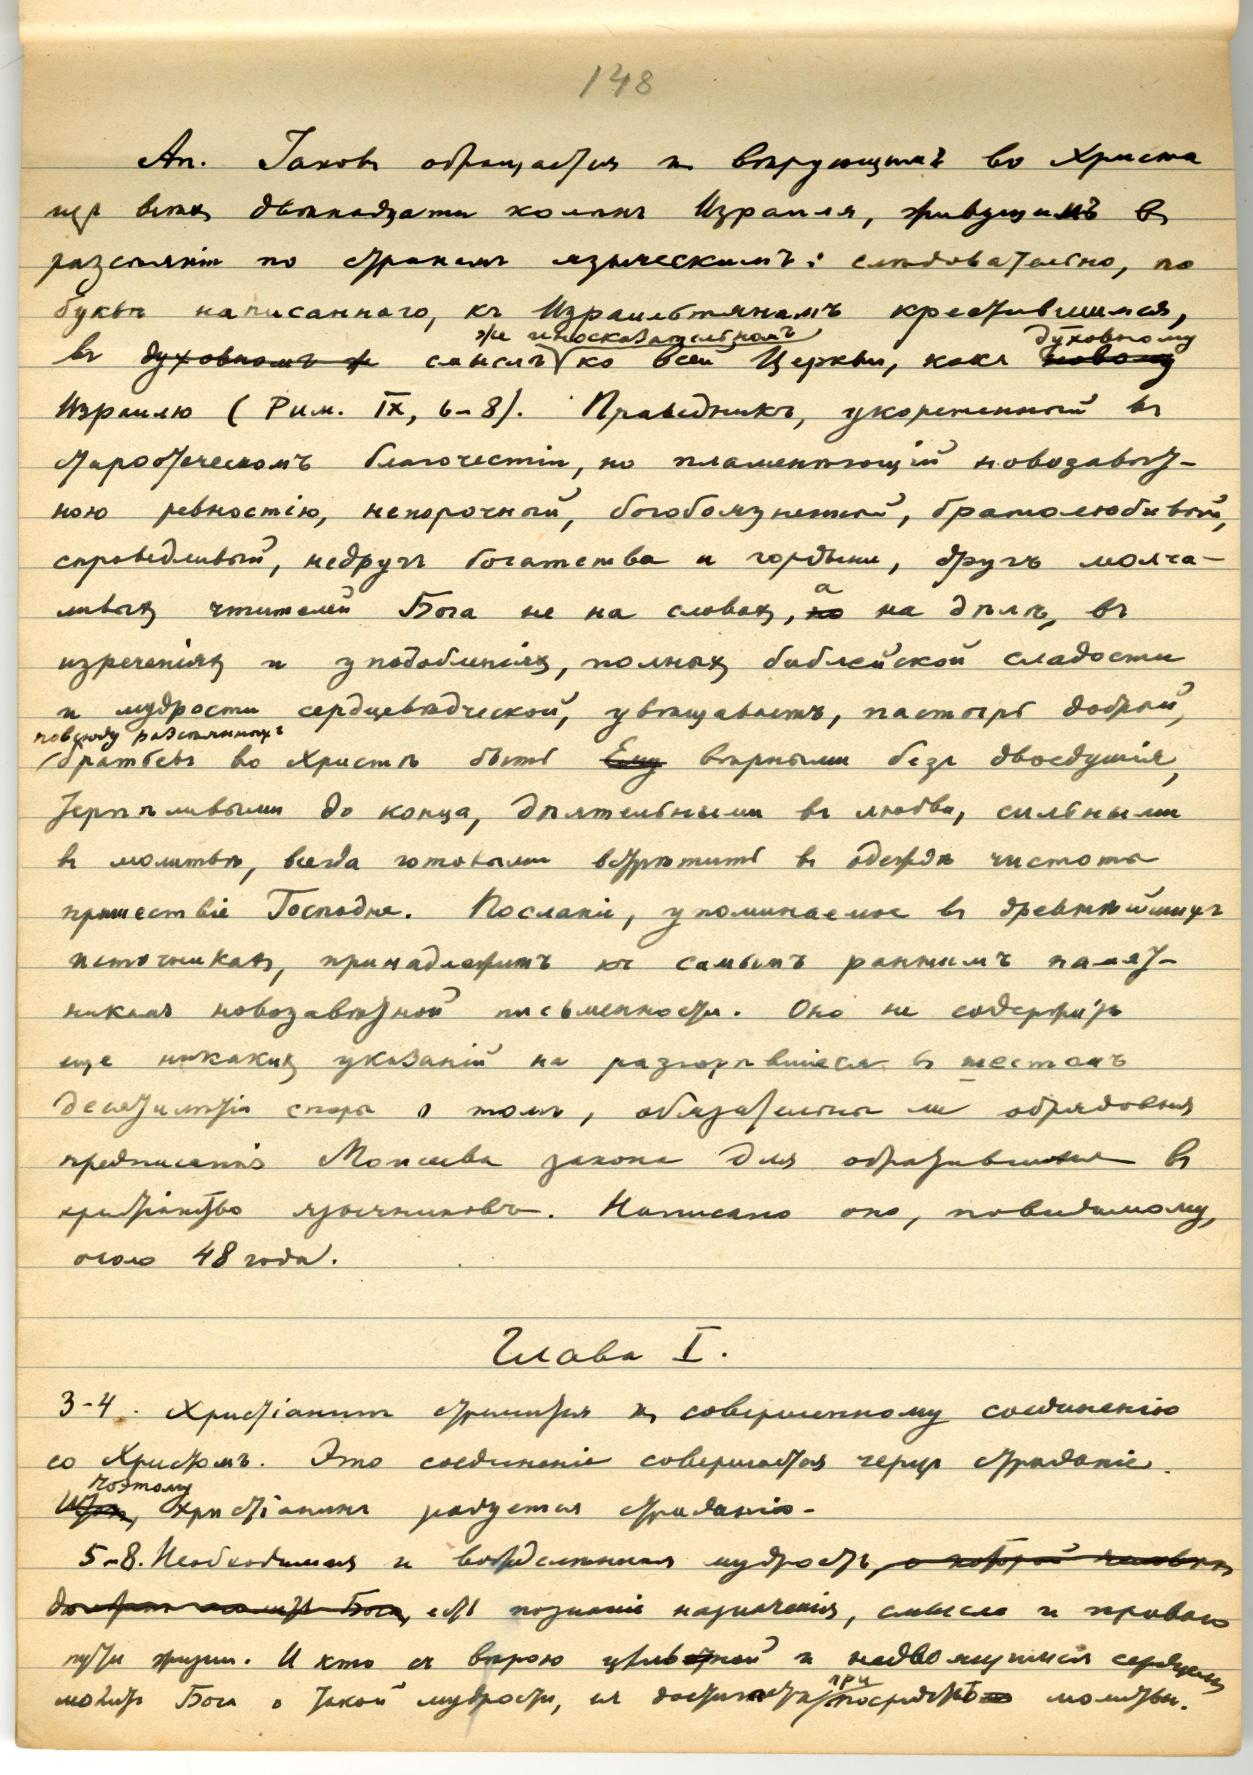 148
Ап. Іаковъ обращается къ вѣрующимъ во Христа
изъ всѣхъ двѣнадцати колѣнъ Израиля, живущимъ въ
разсѣяніи по странамъ языческимъ: слѣдовательно, по
буквѣ написаннаго, къ Израильтянамъ крестившимся,
же иносказательномъ духовному
въ духовномъ же смыслѣ ко всей Церкви, какъ новому
Израилю (Рим. IX, 6-8). Праведникъ, укорененный въ
староотеческомъ благочестіи, но пламенѣющій новозавѣт-
ною ревностію, непорочный, богобоязненный, братолюбивый,
справедливый, недругъ богатства и гордыни, другъ молча-
а
ливыхъ чтителей Бога не на словахъ, но на дѣлѣ, въ
изреченіяхъ и уподобленіяхъ, полныхъ библейской сладости
и мудрости сердцевѣдческой, увѣщаваетъ, пастырь добрый,
повсюду разсѣянныхъ
братьевъ во Христѣ быть Ему вѣрными безъ двоедушія,
терпѣливыми до конца, дѣятельными въ любви, сильными
въ молитвѣ, всегда готовыми встрѣтить въ одеждѣ чистоты
пришествіе Господне. Посланіе, упоминаемое въ древнѣйшихъ
источникахъ, принадлежитъ къ самымъ раннимъ памят-
никамъ новозавѣтной письменности. Оно не содержитъ
еще никакихъ указаній на разгорѣвшіеся въ шестомъ
десятилѣтіи споры о томъ, обязательны ли обрядовыя
предписанія Моисеева закона для обратившихся въ
христіанство язычниковъ. Написано оно, повидимому,
около 48 года.
Глава I.
3-4. Христіанинъ стремится къ совершенному соединенію
со Христомъ. Это соединеніе совершается черезъ страданіе.
Поэтому
Итакъ, христіанинъ радуется страданію.
5-8. Необходимая и вожделѣнная мудрость, о которой человѣкъ
долженъ молить Бога, есть познаніе назначенія, смысла и праваго
пути жизни. И кто съ вѣрою цѣльной и недвоящимся сердцемъ
при
молитъ Бога о такой мудрости, ея достигаетъ посредствѣ молитвы.